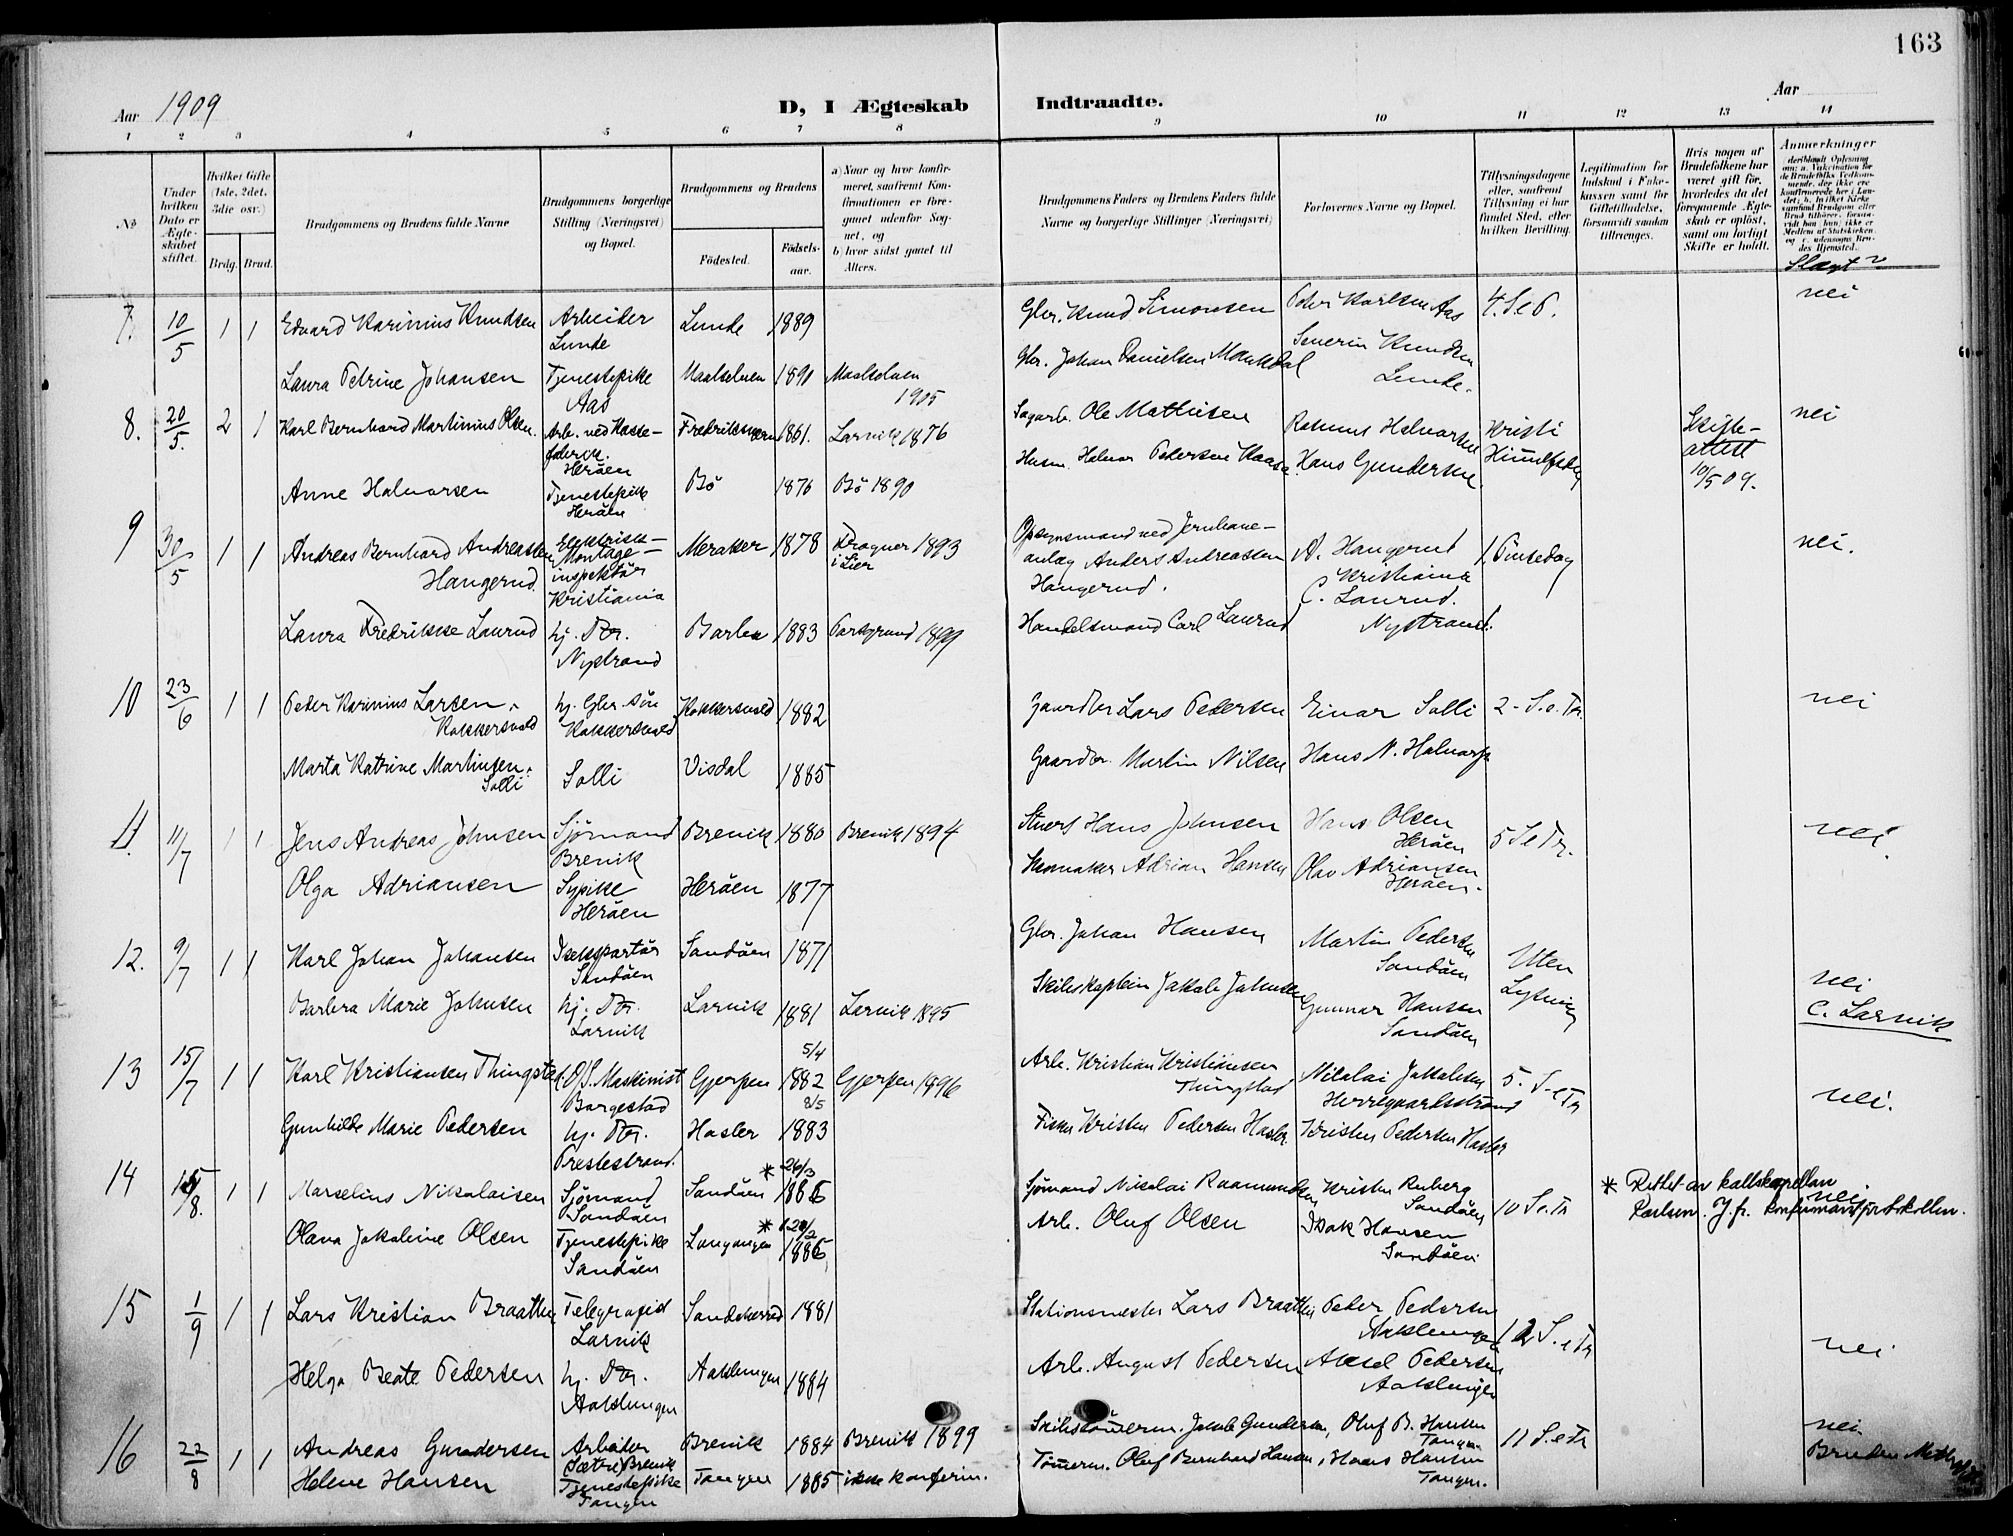 163
Aar 1909
D, I Ægteskab Indtraadte.
Aar
1 2 3 4 5 6 7 8 9 10 11 12 13 14
No
Under hvilken Dato er Ægteskabet stiftet.
Hvilket Gifte (1ste, 2det, 3die osv.)
Brdg. Brud.
Brudgommens og Brudens fulde Navne
Brudgommens borgerlige Stilling (Næringsvei) og Bopæl.
Brudgommens og Brudens
Födested.
Födselsaar.
a) Naar og hvor konfirmeret, saafremt Konfirmationen er foregaaet udenfor Sognet, og
b) hvor sidst gaaet til Alters.
Brudgommens Faders og Brudens Faders fulde Navne og borgerlige Stillinger (Næringsvei)
Forlovernes Navne og Bopæl.
Tillysningsdagene eller, saafremt Tillysning ei har fundet Sted, efter hvilken Bevilling.
Legitimation for Indskud i Enkekassen samt for Giftetilladelse, forsaavidt saadan tiltrænges.
Hvis nogen af Brudefolkene har været gift för, hvorledes da det foregaaende Ægteskab er oplöst, samt om lovligt Skifte er holdt.
Anmerkninger
Slægt?
7. 10/5 1 1 Edvard Karinius Knudsen Arbeider Lunde Lunde 1889 Gbr. Knud Simonsen Peder Karlsen Aas 4. S. e P. nei
Severin Knudsen Lunde.
Laura Petrine Johansen Tjenestepike Aas Maalselven 1891 Maalselven 1905 Gbr. Johan Danielsen
8. 20/5. 2 1 Karl Bernhard Martinius Olsen. Arb. ved Heröen Fredriksværn 1861. Larvik 1876 Sagarb. Ole Mathisen Rasmus Halvorsen Kristi Himmelf. Skifteattest 10/5 09. nei
Anne Halvorsen Tjenestepike Heröen Bö 1876 Bö 1890 Husm. Halvor Pedersen Hans Gundersen
9 30/5 1 1 Andreas Bernhard Andreassen Haugerud. Elektrisk- Montage- inspektör Kristiania Meraker 1878 Fragner i Lier 1893 Opsynsmand ved Jernbaneanlæg Anders Andreassen Haugerud. A. Haugerud Kristiania 1. Pinsedag nei.
Laura Fredrikke Laurud hj. Dtr. Nystrand Barbu 1883 Porsgrund 1899 Handelsmand Carl Laurud C. Laurud. Nystrand.
10 23/6 1 1 Peder Karinius Larsen Kokkersvold hj. Gbr. sön Kokkersvold Kokkersvold 1882 Gaardbr Lars Pedersen Einar Solli 2. S. e. Tr. nei
Marta Katrine Martinsen Solli Solli Visdal 1885 Gaardbr. Martin Nilsen Hans N. Halvorsen
11. 11/7 1 1 Jens Andreas Johnsen Sjömand Brevik Brevik 1880 Brevik 1894 Hans Johnsen Hans Olsen Heröen 5 S e Tr. nei.
Olga Adriansen Sypike Heröen Heröen 1877 Skomaker Adrian Hansen Olav Adriansen Heröen.
12. 9/7 1 1 Karl Johan Johansen Iseksportör Sandöen Sandöen 1871 Gbr. Johan Hansen Martin Pedersen Sandöen Uten Lysning nei
Barbra Marie Johnsen hj. Dtr. Larvik Larvik 1881 Larvik 1895 Skibskaptein Jakob Johnsen Gunnar Hansen Sandöen C. Larvik
13 15/7 1 1 Karl Kristiansen Thingstad D/S. Maskinist Borgestad Gjerpen 5/4 1882 Gjerpen 1896 Arb. Kristian Kristiansen Thingstad Nikolai Jakobsen Herregaardsstrand 5. S. e Tr nei.
Gunhilde Marie Pedersen hj. Dtr. Prestestrand. Hasler 2/5 1883 Fisker Kristen Pedersen Hasler. Kristen Pedersen Hasler
14 15/8. 1 1 Marselius Nikolaisen Sjömand Sandöen Sandöen * 26/3 1886 Sjömand Nikolai Rasmussen Kristen Ruberg Sandöen 10 S. e. Tr * Rettet av kallskapellan nei
Karlsen. J.fr. konfirmantprotokollen.
Olava Jakobine Olsen Tjenestepike Sandöen Langangen * 20/2 1886 Arb. Oluf Olsen Isak Hansen Sandöen
15 1/9 1 1 Lars Kristian Braathen Telegrafist Larvik Sandeherred 1881 Stationsmester Lars Braathen Peder Pedersen Aaklungen 12 S. e Tr nei
Helga Beate Pedersen hj. Dtr. Aaklungen Aaklungen 1884 Arb. August Pedersen Aksel Pedersen Aaklungen
16 22/8 1 1 Andreas Gundersen Arbeider (Sætre) Brevik Brevik 1884 Brevik 1899 Skibstömmerm. Jakob Gundersen, Oluf B. Hansen Tangen 11 S. e Tr nei.
Helene Hansen Tjenestepike Tangen Tangen 1885 ikke konferm. Tömmerm. Oluf Bernhard Hansen, Hans Hansen Tangen. Bruden